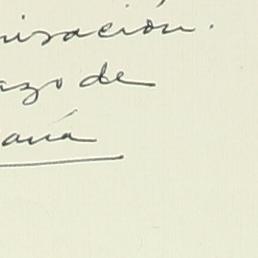 nisación.
azo de
aná